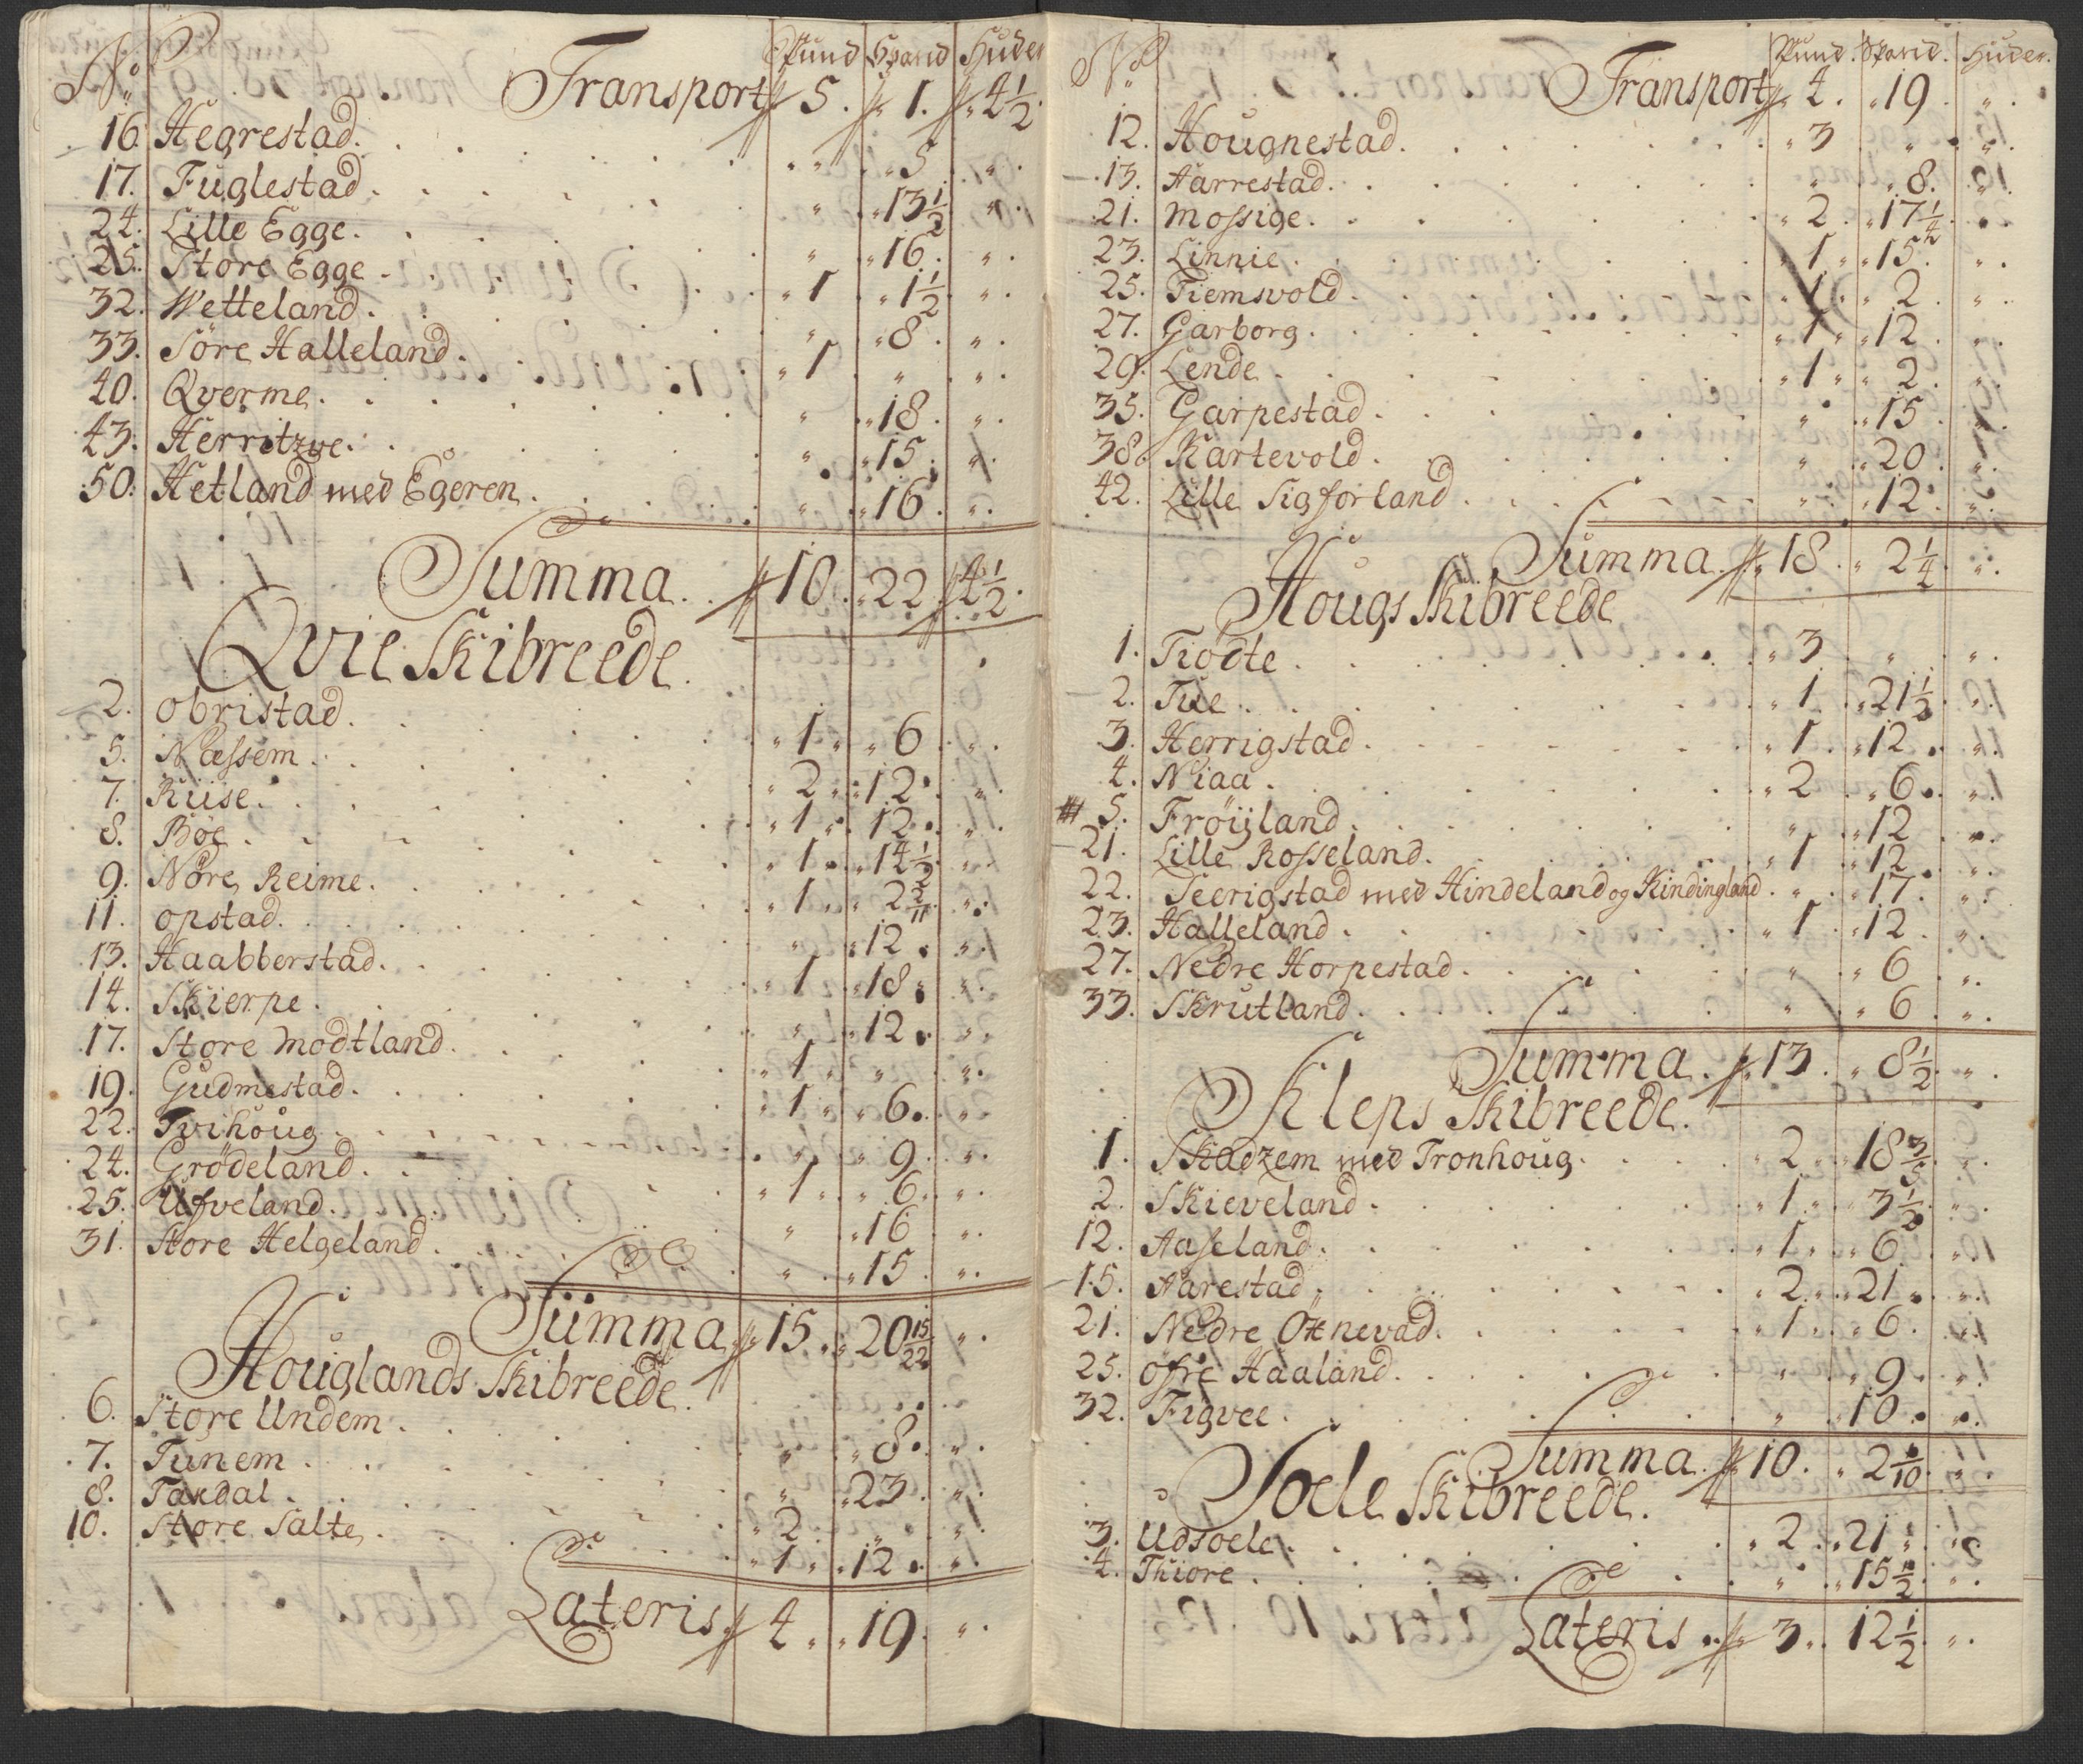 No Pund Spand Huder
Transport 5. 1. 4½.
16 Hegrestad. " 5 "
17. Fuglestad. " 13½ "
24. Lille Egge. " 16. "
25. Store Egge. 1 1½ "
32. Wetteland. " 8 "
33. Söre Halleland. 1 " "
40. Qverme. " 18. "
43. Herritzve. " 15. "
50. Hetland med Egeren. " 16. "
Summa. 10. 22. 4½.
Qvie Skibreede.
2. Obristad. 1 6. "
5. Næssem. 2 12. "
7. Riise. 1. 12. "
8. Böe. 1. 14½ "
9. Nöre Reime. 1 2 2/11 "
11. Opstad. " 12. "
13. Haabberstad. 1 18. "
14. Skierpe. " 12. "
17. Store Modtland. 1 " "
19. Gudmestad. 1 6. "
22. Tvihoug. " 9. "
24. Grödeland. 1 6. "
25. Ufveland. " 16 "
31. Store Helgeland. " 15. "
Summa 15. 20 15/22 "
Houglands Skibreede.
6. Store Undem. " 8. "
7. Tunem. " 23. "
8. Taxdal. 2 " "
10. Store Salte. 1 12. "
Lateris 4 19. "
No Pund. Spand. Huder.
Transport 4. 19. "
12. Hougnestad. 3 " "
13. Aarrestad. " 8. "
21. Mossige. 2 17¼ "
23. Linnie. 1 15. "
25. Tiemsvold. 1 2. "
27. Garborg. 1 12. "
29. Lende. 1 2. "
35. Garpestad. " 15. "
38. Kartevold. " 20. "
42. Lille Sigforland. " 12. "
Summa. 18. 2¼ "
Hougs Skibreede
1. Tiödte. 3 " "
2. Tue. 1 21½ "
3. Herrigstad. 1 12. "
4. Niaa. 2 6. "
5. Fröÿland. " 12 "
21. Lille Rosseland. 1 12. "
22. Seerigstad med Hindeland og Kindingland. " 17. "
23. Halleland. 1 12. "
27. Nedre Horpestad. " 6. "
33. Skrutland. " 6. "
Summa. 13. 8½. "
Kleps Skibreede.
1. Skadzem med Tronhoug. 2 18 3/5 "
2. Skieveland. 1 3½ "
12. Aaseland. 1 6. "
15. Aarestad. 2. 21. "
21. Nedre Öxnevad. 1 6. "
25. Öfre Haaland. " 9. "
32. Figvee. " 10. "
Summa. 10. 2 1/10. "
Soele Skibreede.
3. Udsoele. 2 21. "
4. Thiore. " 15½ "
Lateris. 3. 12½. "